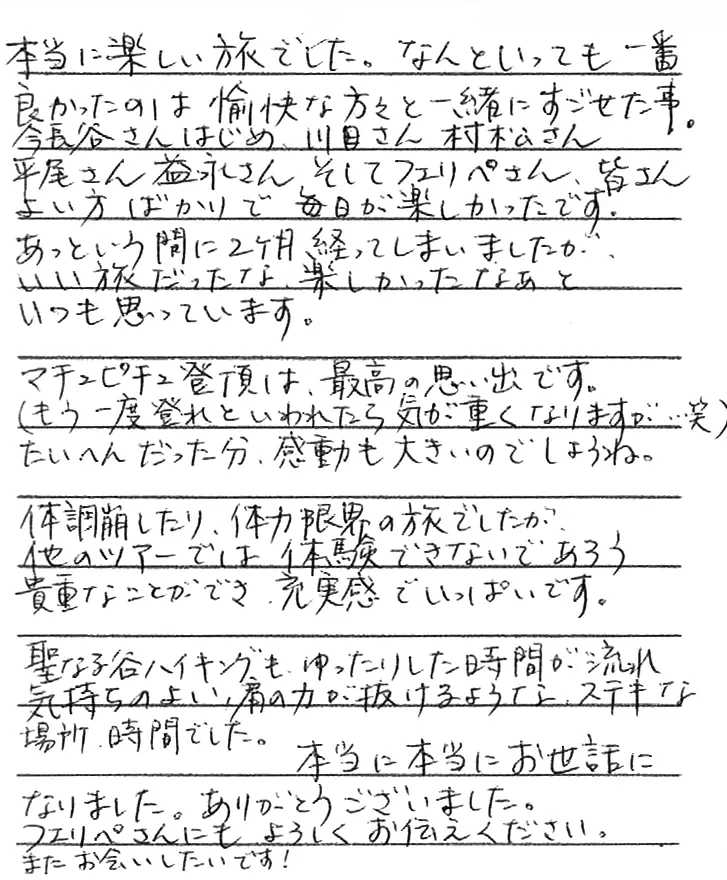 本当に楽しい旅でした。なんといっても一番
良かったのは愉快な方々と一緒にすごせた事。
今長谷さんはじめ、川目さん 村松さん
平尾さん 益永さん そしてフェリペさん、皆さん
よい方ばかりで 毎日が楽しかったです。
あっという間に2ヶ月経ってしまいましたが、
いい旅だったな、楽しかったなぁと
いつも思っています。
マチュピチュ登頂は、最高の思い出です。
(もう一度登れといわれたら気が重くなりますが…笑)
たいへんだった分、感動も大きいのでしょうね。
体調崩したり、体力限界の旅でしたが、
他のツアーでは体験できないであろう
貴重なことができ、充実感でいっぱいです。
聖なる谷ハイキングも、ゆったりした時間が流れ
気持ちのよい、肩の力が抜けるような、ステキな
場所、時間でした。
本当に本当にお世話に
なりました。ありがとうございました。
フェリペさんにもよろしくお伝えください。
またお会いしたいです!